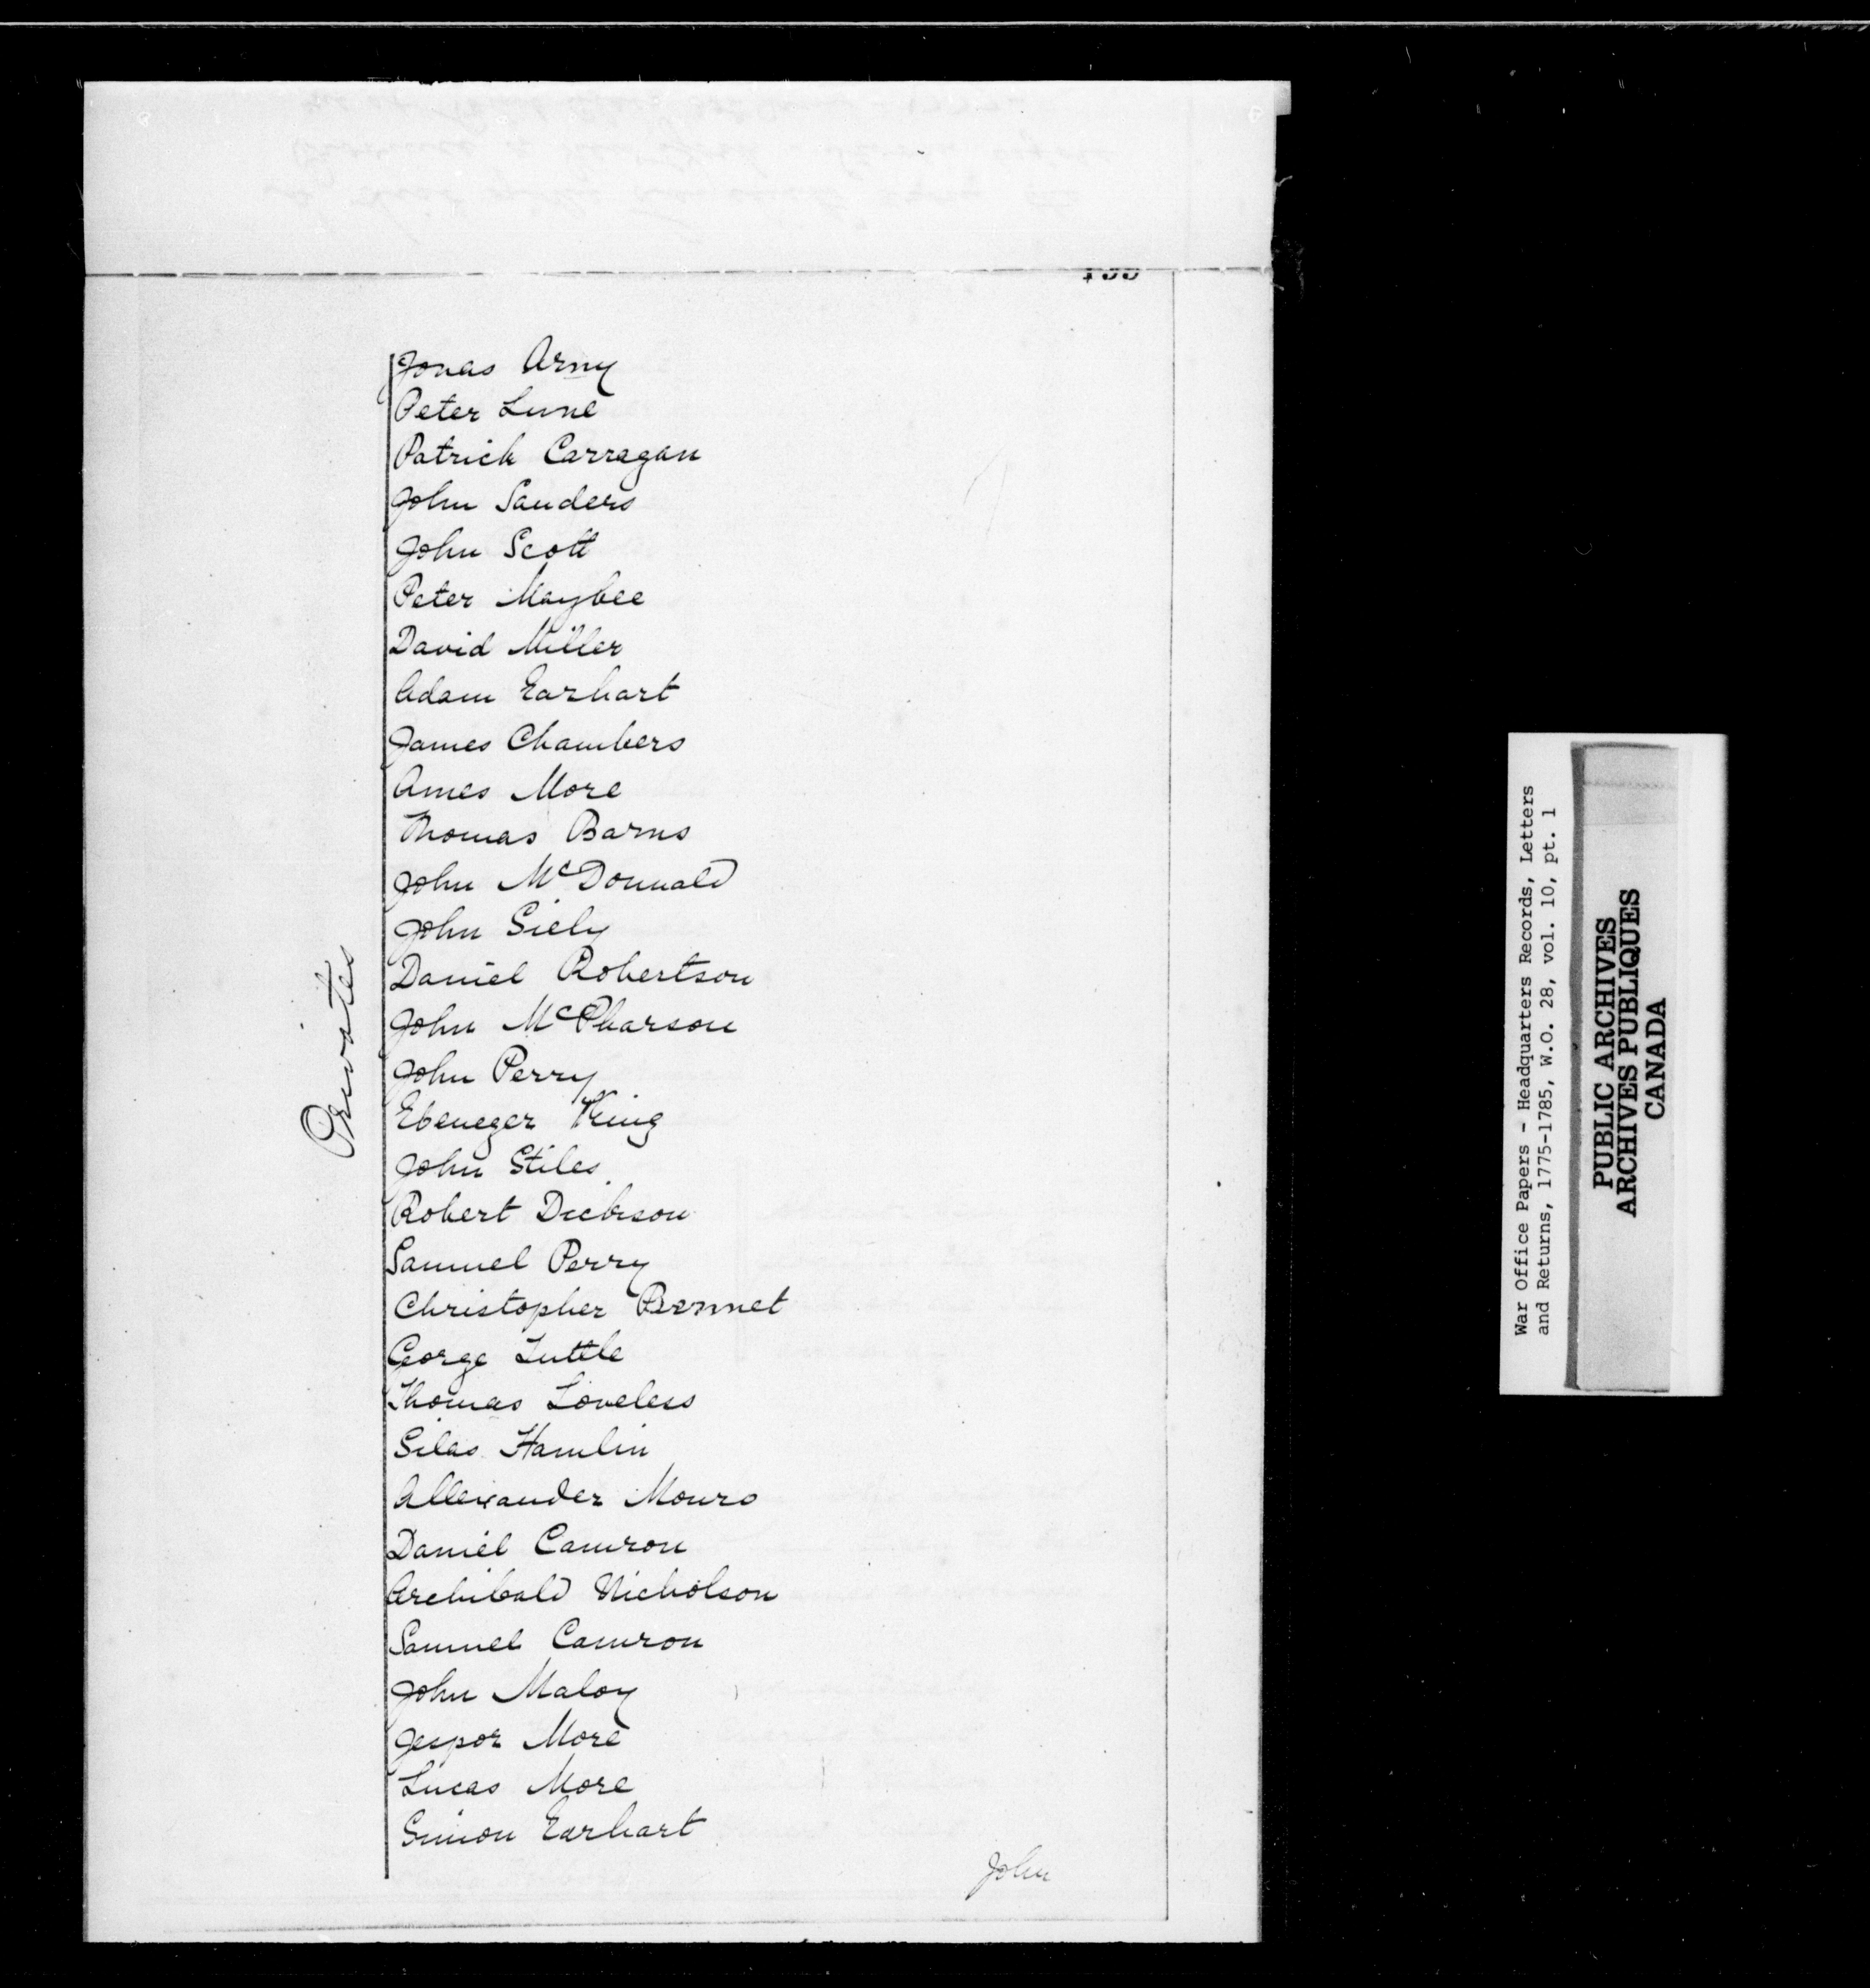 Privates
Jonas Army
Peter Lune
Patrick Carragan
John Sanders
John Scott
Peter Maybee
David Miller
Adam Earhart
James Chambers
Ames More
Thomas Barns
John McDonnald
John Siely
Daniel Robertson
John McPharson
John Perry
Ebenezer King
John Stiles
Robert Dickson
Samuel Perry
Christopher Bennet
George Tuttle
Thomas Loveless
Silas Hamlin
Allexander Monro
Daniel Camron
Archibald Nicholson
Samuel Camron
John Maloy
Jespor More
Lucas More
Simon Earhart
John
War Office Papers - Headquarters Records, Letters
and Returns, 1775-1785, W.O. 28, vol. 10, pt. 1
PUBLIC ARCHIVES
ARCHIVES PUBLIQUES
CANADA